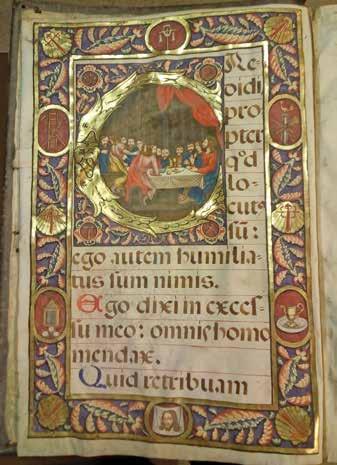 Re
didi
pro
pter
qd̃
lo-
cutꝰ
sũ:
ego autem humilia-
tus sum nimis.
Ego dixi in exces-
su meo: omnis homo
mendax.
Quid retribuam